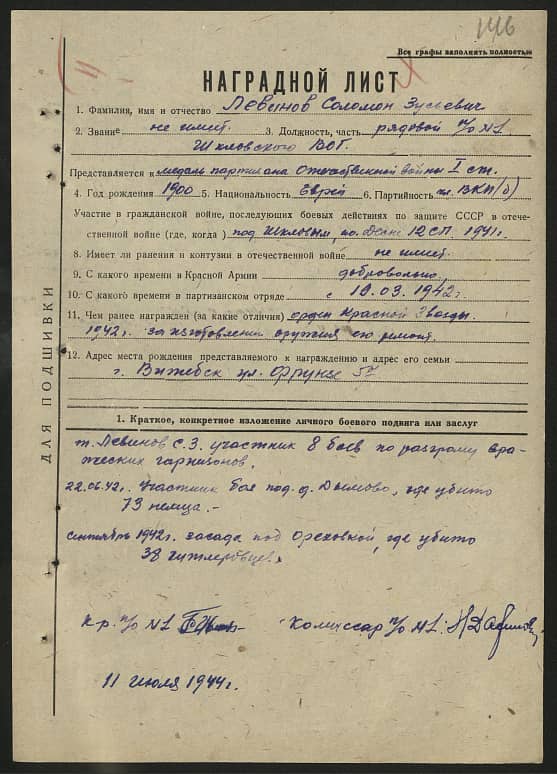 146
Все графы заполнять полностью
НАГРАДНОЙ ЛИСТ
1. Фамилия, имя и отчество Левинов Соломон Зусьевич
2. Звание не имеет. 3. Должность, часть рядовой п/о №1
Шкловского ВОГ.
Представляется к медаль партизана Отечественной войны I ст.
4. Год рождения 1900 5. Национальность Еврей 6. Партийность чл. ВКП(б)
Участие в гражданской войне, последующих боевых действиях по защите СССР в отече-
ственной войне (где, когда) под Шкловым, 12 СП. 1941г.
8. Имеет ли ранения и контузии в отечественной войне не имеет.
9. С какого времени в Красной Армии добровольно,
10. С какого времени в партизанском отряде с 19.03.1942г.
11. Чем ранее награжден (за какие отличия) орден Красной Звезды
1942г. за изготовление оружия его ремонт.
12. Адрес места рождения представляемого к награждению и адрес его семьи
г. Витебск ул. Фрунзе
ДЛЯ ПОДШИВКИ
1. Краткое, конкретное изложение личного боевого подвига или заслуг
т. Левинов С.З. участник 8 боев по разгрому вра-
жеских гарнизонов.
22.06.42г. Участник боя под д. Дымово, где убито
73 немца. -
сентябрь 1942г. засада под Ореховкой, где убито
38 гитлеровцев.
К-р. п/о №1 Комиссар п/о №1.
11 июля 1944г.